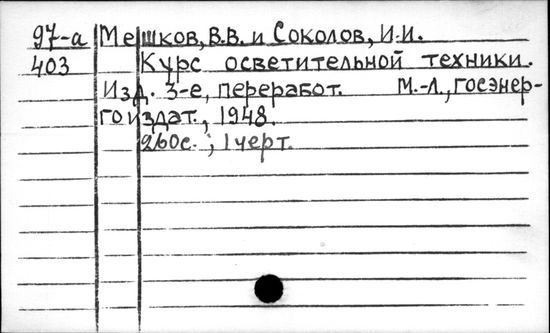 97-а Мешков, В.В. и Соколов, И.И.
403 Курс осветительной техники.
Изд. 3-е, переработ. М.-Л., госэнер-
гоиздат., 1948.
260с.; 1 черт.